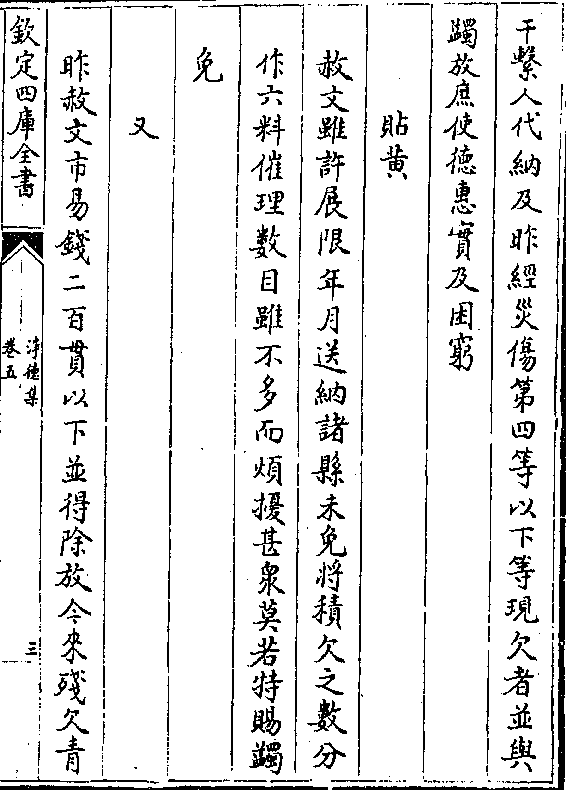 干繫人代納及昨經災傷第四等以下等現欠者並與
蠲放庶使德惠實及困窮
貼黄
赦文雖許展限年月送納諸縣未免將積欠之數分
作六料催理數目雖不多而煩擾甚衆莫若特賜蠲
免
又
昨赦文市易錢二百貫以下並得除放今來殘欠青
欽定四庫全書
淨德集
卷五
三